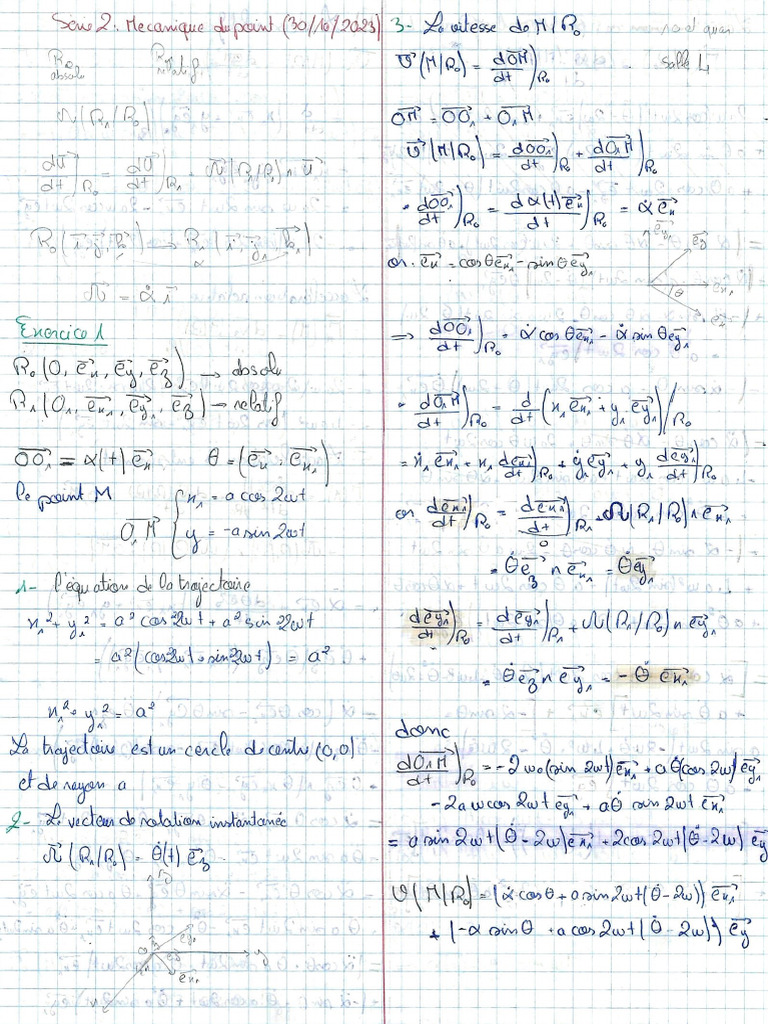 Série 2: Mecanique du point (30/10/2023)
R0 absolu R1 relatif
Ω(R1/R0)
dU/dt)R0 = dU/dt)R1 + Ω(R1/R0) ∧ U
R0(i, j, k) → R1(i, j1, k1)
α
Ω = α̇ i
Exercice 1
R0(O, ex, ey, ez) → absolu
R1(O1, ex1, ey1, ez) → relatif
OO1 = α(t) ex θ = (ex, ex1)
le point M { x1 = a cos 2ωt
O1M { y = -a sin 2ωt
1- l'équation de la trajectoire
x1² + y1² = a² cos²2ωt + a² sin²2ωt
= a²(cos²2ωt + sin²2ωt) = a²
x1² + y1² = a²
La trajectoire est un cercle de centre (0,0)
et de rayon a
2- Le vecteur de rotation instantanée
Ω(R1/R0) = θ̇(t) ez
3- La vitesse de M/R0
V(M/R0) = dOM/dt)R0 salle L4
OM = OO1 + O1M
V(M/R0) = dOO1/dt)R0 + dO1M/dt)R0
• dOO1/dt)R0 = dα(t)ex/dt)R0 = α̇ ex
or ex = cosθ ex1 - sinθ ey1
ey1 ey ex1 θ ex
⇒ dOO1/dt)R0 = α̇ cosθ ex1 - α̇ sinθ ey1
• dO1M/dt)R0 = d/dt (x1 ex1 + y1 ey1)/R0
= ẋ1 ex1 + x1 dex1/dt)R0 + ẏ ey1 + y1 dey1/dt)R0
or dex1/dt)R0 = dex1/dt)R1 + Ω(R1/R0) ∧ ex1
0
= θ̇ ez ∧ ex1 = θ̇ ey1
dey1/dt)R0 = dey1/dt)R1 + Ω(R1/R0) ∧ ey1
= θ̇ ez ∧ ey1 = -θ̇ ex1
donc
dO1M/dt)R0 = -2ωa(sin 2ωt) ex1 + aθ̇(cos 2ω) ey1
- 2aω cos 2ωt ey1 + aθ̇ sin 2ωt ex1
= a sin 2ωt(θ̇ - 2ω) ex1 + 2cos 2ωt(θ̇ - 2ω) ey
V(M/R0) = (α̇ cosθ + a sin 2ωt(θ̇ - 2ω)) ex1
+ (-α sinθ + a cos 2ωt(θ̇ - 2ω)) ey